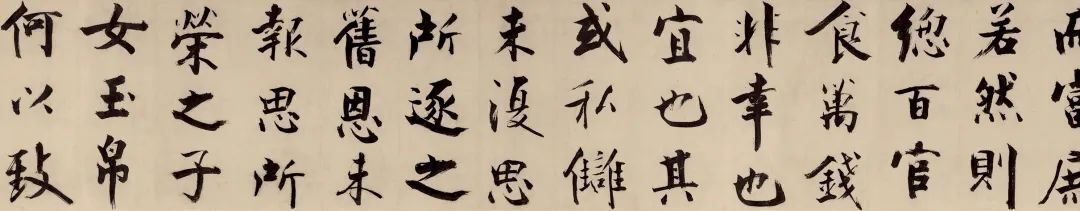 而富庶
若然則
緫百官
食萬錢
非幸也
宜也其
或私讎
未復思
所逐之
舊恩未
報思所
榮之子
女玉帛
何以致